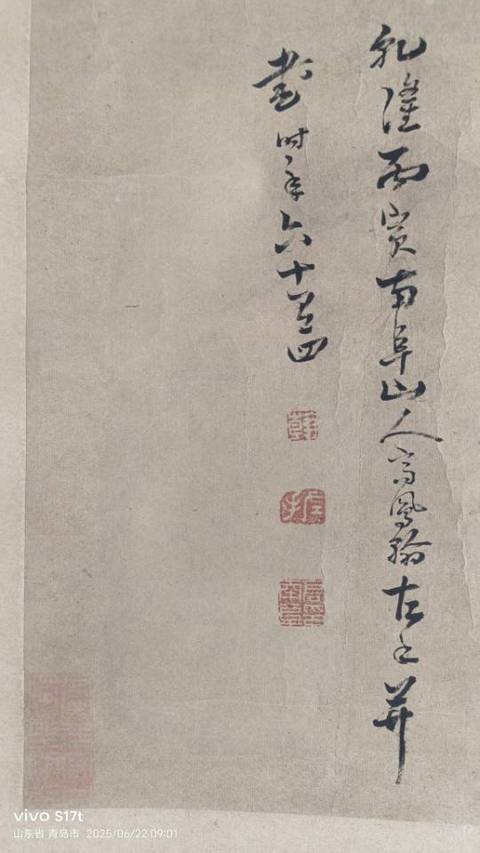 乾隆丙寅南阜山人高鳳翰左手并
書時年六十有四
vivo S17t
山东省 青岛市 2025/06/22 09:01